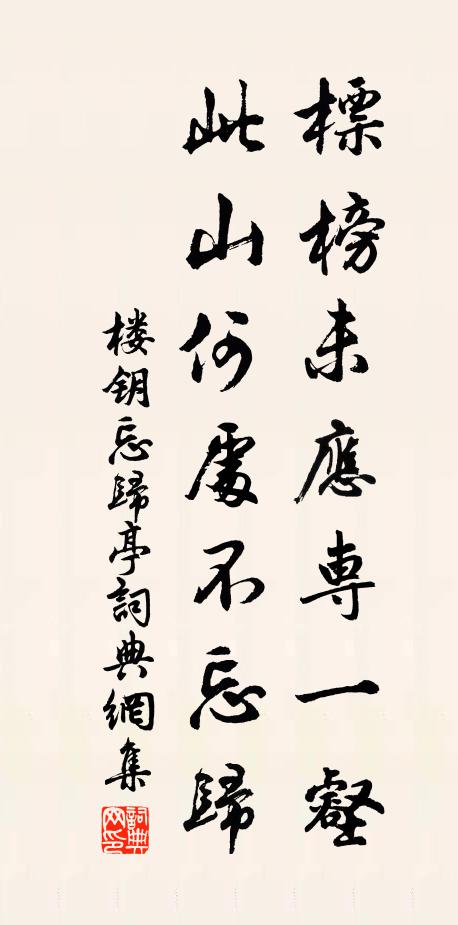 標榜未應專一壑
此山何處不忘歸
楼钥忘歸亭詞典網集
詞典网印